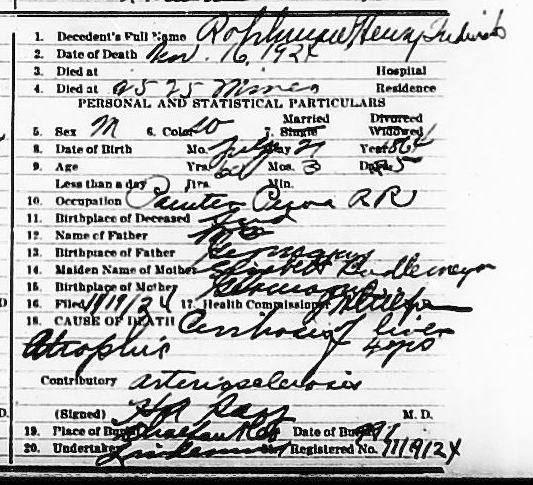 1. Decedent's Full Name Rohlman, Henry
2. Date of Death Nov. 16, 1924
3. Died at Hospital
4. Died at 2525 Residence
PERSONAL AND STATISTICAL PARTICULARS
Married Divorced
5. Sex M 6. Color W 7. Single Widowed
8. Date of Birth Mo. July Day 21 Year 1864
9. Age Yrs. 60 Mos. 3 Days 25
Less than a day Hrs. Min.
10. Occupation Painter R R
11. Birthplace of Deceased Ind
12. Name of Father
13. Birthplace of Father Germany
14. Maiden Name of Mother
15. Birthplace of Mother Germany
16. Filed 11/19/24 17. Health Commissioner
18. CAUSE OF DEATH Cirrhosis of liver
Atrophic 4 yrs
Contributory arteriosclerosis
(Signed) M. D.
19. Place of Burial Date of Burial
20. Undertaker Registered No. 11/19/24